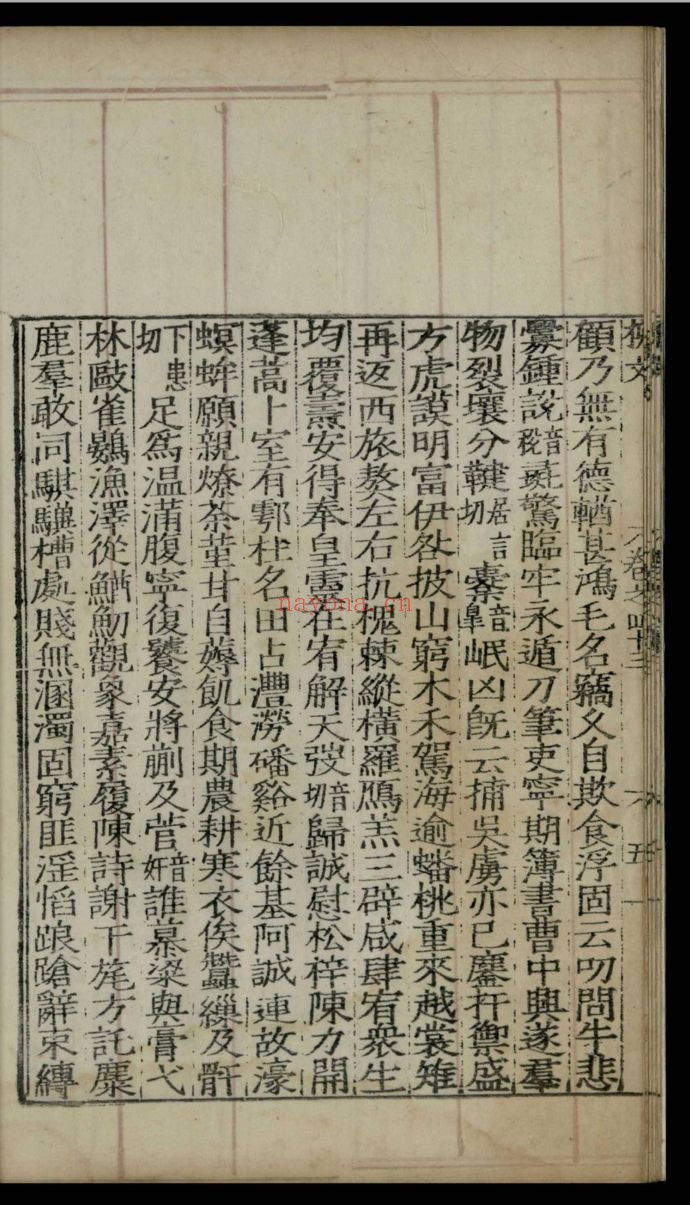 柳文
卷之四十二
五
顧乃無有德輶甚鴻毛名竊久自欺食浮固云叨問牛悲
釁鍾說音稅彘驚臨牢永遁刀筆吏寧期簿書曹中興遂羣
物裂壤分鞬居言切櫜音皐岷凶旣云捕吳虜亦已鏖扞禦盛
方虎謨明富伊咎披山窮木禾駕海逾蟠桃重來越裳雉
再返西旅獒左右抗槐棘縱橫羅鴈羔三辟咸肆宥衆生
均覆燾安得奉皇靈在宥解天弢音叨歸誠慰松梓陳力開
蓬蒿卜室有鄠杜名田占灃澇磻谿近餘基阿誠連故濠
螟蛑願親燎荼堇甘自薅飢食期農耕寒衣俟蠶繅及骭
下患切足爲温滿腹寧復饕安將蒯及菅音奸誰慕粱與膏弋
林敺雀鷃漁澤從鰌魛觀象嘉素履陳詩謝干旄方託麋
鹿羣敢同騏驥槽處賤無溷濁固窮匪淫慆踉蹡辭束縛
nayona.cn